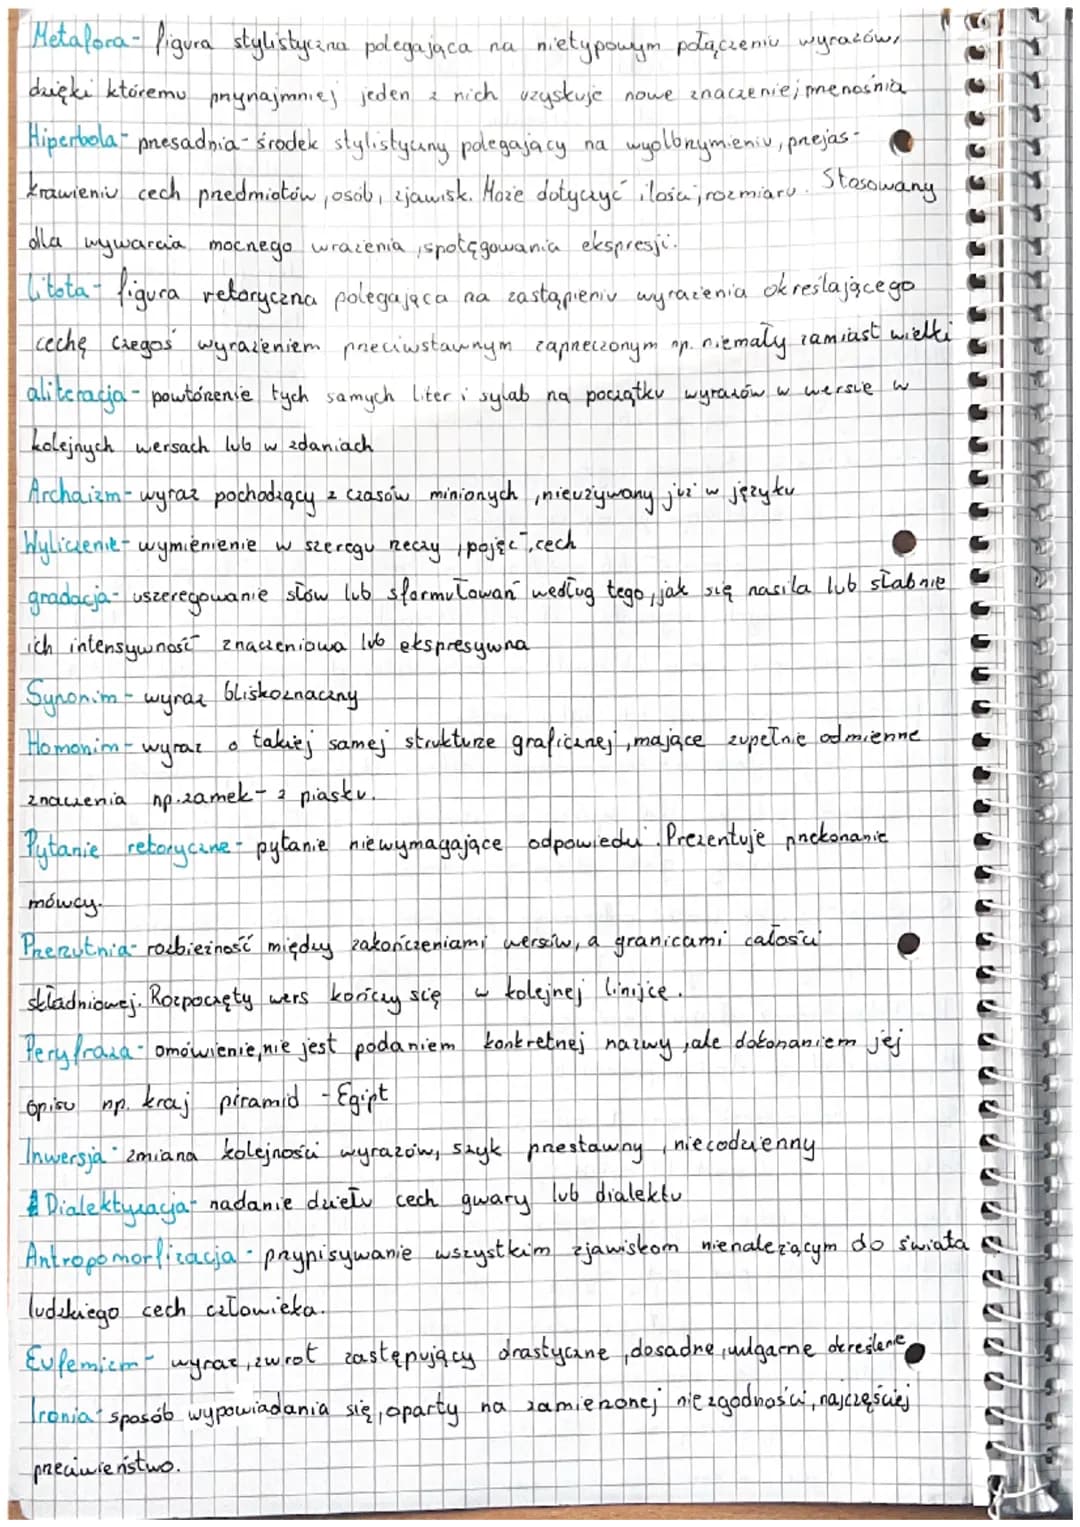 Metafora- figura stylistyczna polegająca na nietypowym połączeniu wyrazów,
dzięki któremu przynajmniej jeden z nich uzyskuje nowe znaczenie; przenośnia
Hiperbola- przesadnia- środek stylistyczny polegający na wyolbrzymieniu, przejas-
krawieniu cech przedmiotów, osób, zjawisk. Może dotyczyć ilości, rozmiaru. Stosowany
dla wywarcia mocnego wrażenia, spotęgowania ekspresji.
Litota- figura retoryczna polegająca na zastąpieniu wyrażenia określającego
cechę czegoś wyrażeniem przeciwstawnym zaprzeczonym np. niemały zamiast wielki
aliteracja- powtórzenie tych samych liter i sylab na początku wyrazów w wersie w
kolejnych wersach lub w zdaniach
Archaizm- wyraz pochodzący z czasów minionych, nieużywany już w języku
Wyliczenie- wymienienie w szeregu rzeczy, pojęć, cech
gradacja- uszeregowanie słów lub sformułowań według tego, jak się nasila lub słabnie
ich intensywność znaczeniowa lub ekspresywna
Synonim- wyraz bliskoznaczny
Homonim- wyraz o takiej samej strukturze graficznej, mające zupełnie odmienne
znaczenia np. zamek- z piasku.
Pytanie retoryczne- pytanie niewymagające odpowiedzi. Prezentuje przekonanie
mówcy.
Przerzutnia- rozbieżność między zakończeniami wersów, a granicami całości
składniowej. Rozpoczęty wers kończy się w kolejnej linijce.
Peryfraza- omówienie, nie jest podaniem konkretnej nazwy, ale dokonaniem jej
opisu np. kraj piramid - Egipt
Inwersja- zmiana kolejności wyrazów, szyk przestawny, niecodzienny
Dialektyzacja- nadanie dziełu cech gwary lub dialektu
Antropomorfizacja- przypisywanie wszystkim zjawiskom nienależącym do świata
ludzkiego cech człowieka.
Eufemizm- wyraz, zwrot zastępujący drastyczne, dosadne, wulgarne określenie
Ironia- sposób wypowiadania się, oparty na zamierzonej niezgodności, najczęściej
przeciwieństwo.